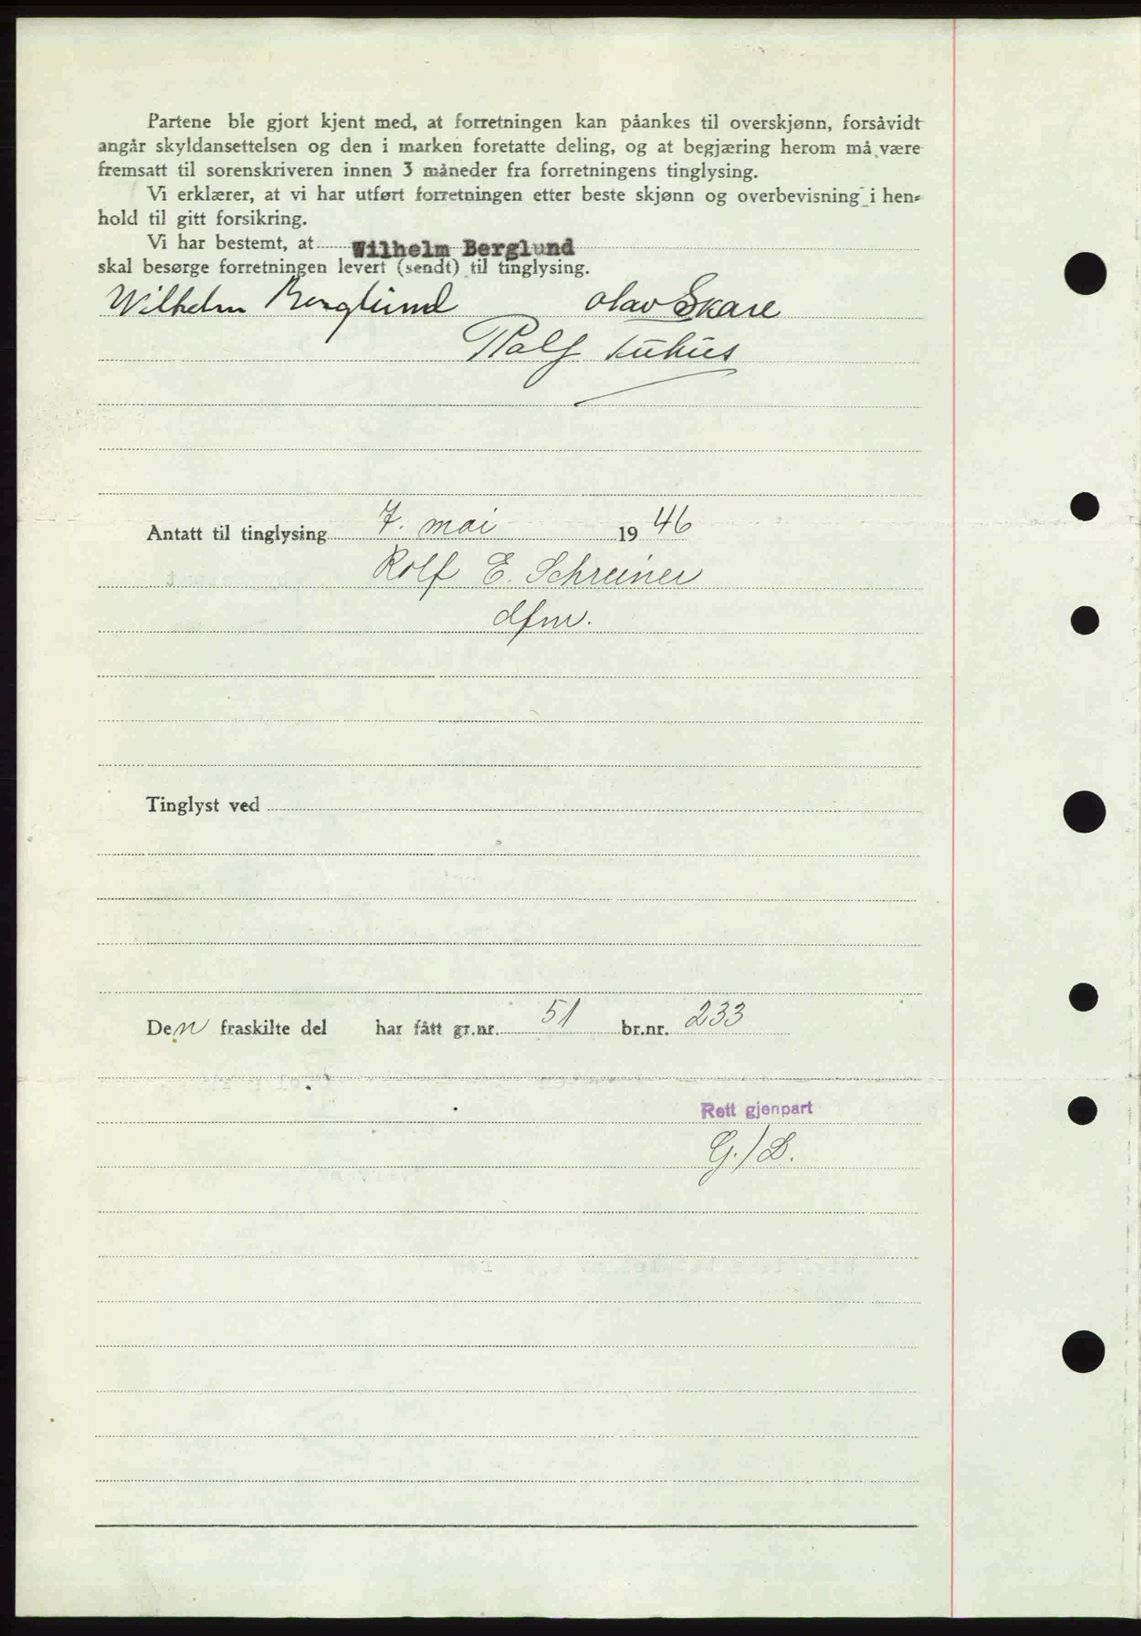 Partene ble gjort kjent med, at forretningen kan påankes til overskjønn, forsåvidt
angår skyldansettelsen og den i marken foretatte deling, og at begjæring herom må være
fremsatt til sorenskriveren innen 3 måneder fra forretningens tinglysing.
Vi erklærer, at vi har utført forretningen etter beste skjønn og overbevisning i hen-
hold til gitt forsikring.
Vi har bestemt, at Wilhelm Berglund
skal besørge forretningen levert (sendt) til tinglysing.
Wilhelm Berglund Olav Skare
Ralf
Antatt til tinglysing 7. mai 1946
Rolf E. Schreiner
dfm.
Tinglyst ved
Den fraskilte del har fått gr.nr. 51 br.nr. 233
Rett gjenpart
G./D.